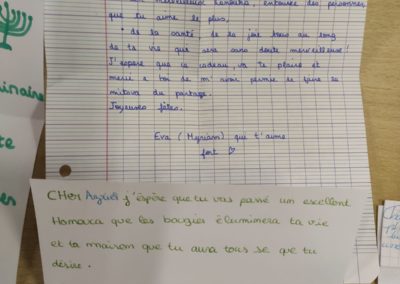 merveilleux Hanouka, entouré des personnes
que tu aime le plus,
• de la santé, de la joie tous au long
de ta vis que sera sans doute merveilleuse !
J'espère que ce cadeau, va te plaire et
merci a toi de m'avoir permis de faire la
mitsva du partage.
Joyeuses fêtes.
Eva (Myriam) qui t'aime
fort ♡
CHer Azriel j'éspère que tu vas passé un excellent
Hanouka que les bougies éluminera ta vie
et ta maison que tu aura tous se que tu
désire.
inaire
te
en